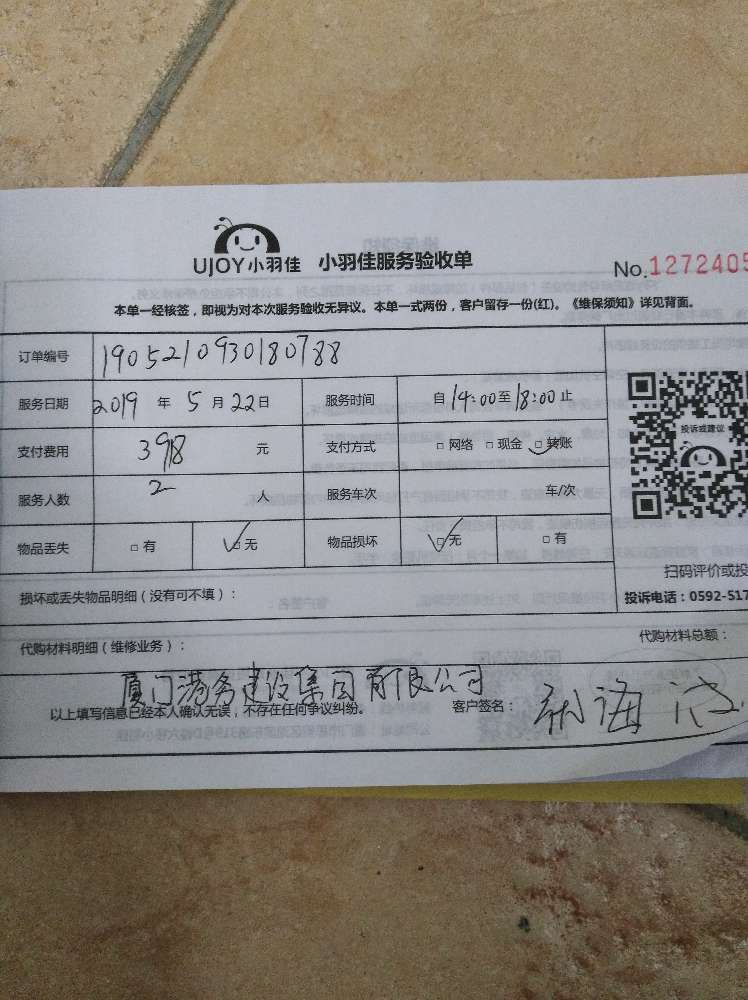 UJOY小羽佳 小羽佳服务验收单
No.1272405
本单一经核签，即视为对本次服务验收无异议。本单一式两份，客户留存一份(红)。《维保须知》详见背面。
订单编号 1905210930180788
服务日期 2019 年 5 月 22日 服务时间 自 14:00至18:00止
支付费用 398 元 支付方式 □ 网络 □ 现金 □ 转账
投诉或建议
服务人数 2 人 服务车次 车/次
物品丢失 □ 有 □ 无 物品损坏 □ 无 □ 有
扫码评价或投
损坏或丢失物品明细（没有可不填）：
投诉电话：0592-517
代购材料明细（维修业务）：
代购材料总额：
厦门港务建设集团有限公司
以上填写信息已经本人确认无误，不存在任何争议纠纷。 客户签名：